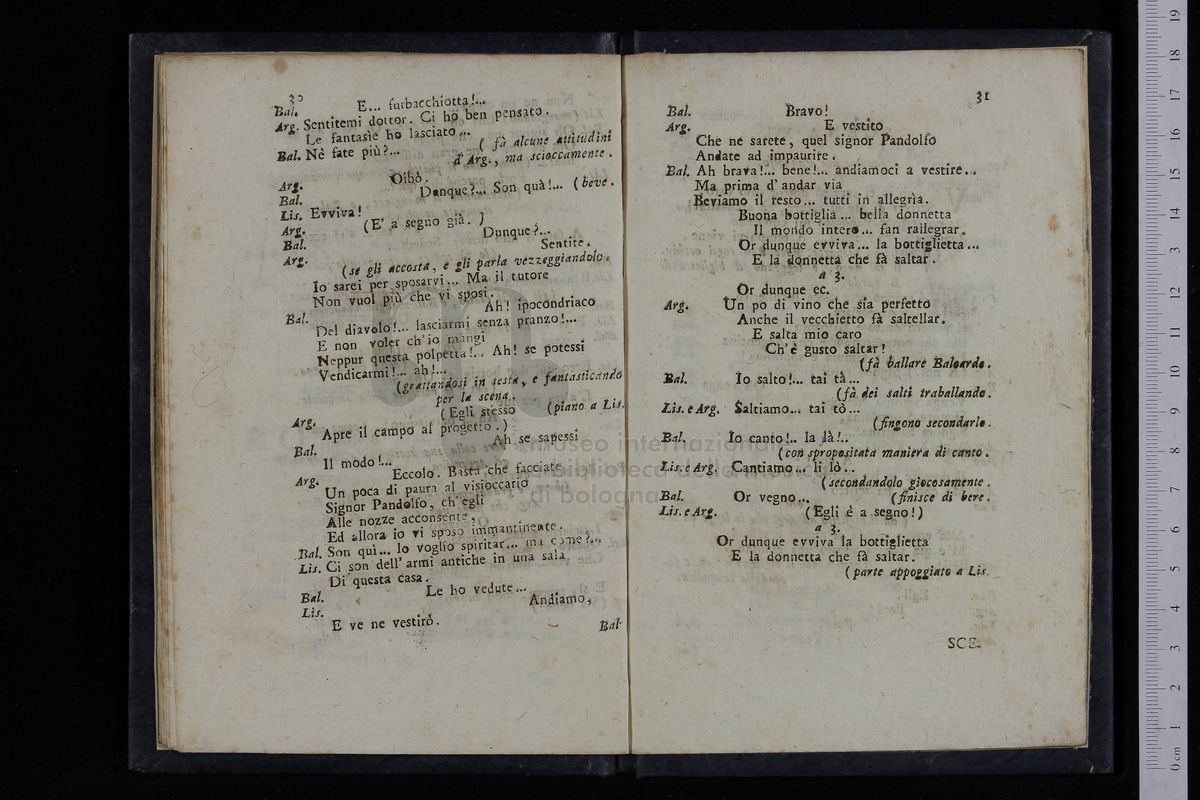 30
Bal. E... furbacchiotta!...
Arg. Sentitemi dottor. Ci ho ben pensato.
Le fantasìe ho lasciato...
Bal. Nè fate più?... ( fà alcune attitudini
d'Arg., ma scioccamente.
Arg. Oibò.
Bal. Dunque?... Son quà!... (beve.
Lis. Evviva!
Arg. (E' a segno già. )
Bal. Dunque?...
Arg. Sentite.
(se gli accosta, e gli parla vezzeggiandolo.
Io sarei per sposarvi... Ma il tutore
Non vuol più che vi sposi.
Bal. Ah! ipocondriaco
Del diavolo!... lasciarmi senza pranzo!...
E non voler ch'io mangi
Neppur questa polpetta!.. Ah! se potessi
Vendicarmi!... ah!...
(grattandosi in testa, e fantasticando
per la scena.
Arg. (Egli stesso (piano a Lis.
Apre il campo al progetto.)
Bal. Ah se sapessi
Il modo!...
Arg. Eccolo. Basta che facciate
Un poca di paura al visioccario
Signor Pandolfo, ch'egli
Alle nozze acconsente,
Ed allora io vi sposo immantinente.
Bal. Son quì... lo voglio spiritar... ma come?...
Lis. Ci son dell'armi antiche in una sala
Di questa casa.
Bal. Le ho vedute...
Lis. Andiamo,
E ve ne vestirò.
Bal-
31
Bal. Bravo!
Arg. E vestito
Che ne sarete, quel signor Pandolfo
Andate ad impaurire.
Bal. Ah brava!... bene!... andiamoci a vestire...
Ma prima d'andar via
Beviamo il resto... tutti in allegrìa.
Buona bottiglia... bella donnetta
Il mondo intero... fan rallegrar.
Or dunque evviva... la bottiglietta...
E la donnetta che fà saltar.
a 3.
Or dunque ec.
Arg. Un po di vino che sia perfetto
Anche il vecchietto fà saltellar.
E salta mio caro
Ch'è gusto saltar!
(fà ballare Baloardo.
Bal. Io salto!... tai tà...
(fà dei salti traballando.
Lis. e Arg. Saltiamo... tai tò...
(fingono secondarlo.
Bal. Io canto!.. la là!..
(con spropositata maniera di canto.
Lis. e Arg. Cantiamo... li lò...
(secondandolo giocosamente.
Bal. Or vegno... (finisce di bere.
Lis. e Arg. (Egli è a segno!)
a 3.
Or dunque evviva la bottiglietta
E la donnetta che fà saltar.
(parte appoggiato a Lis.
SCE-
museo internazionale
e biblioteca della musica
di bologna
0 cm 1 2 3 4 5 6 7 8 9 10 11 12 13 14 15 16 17 18 19